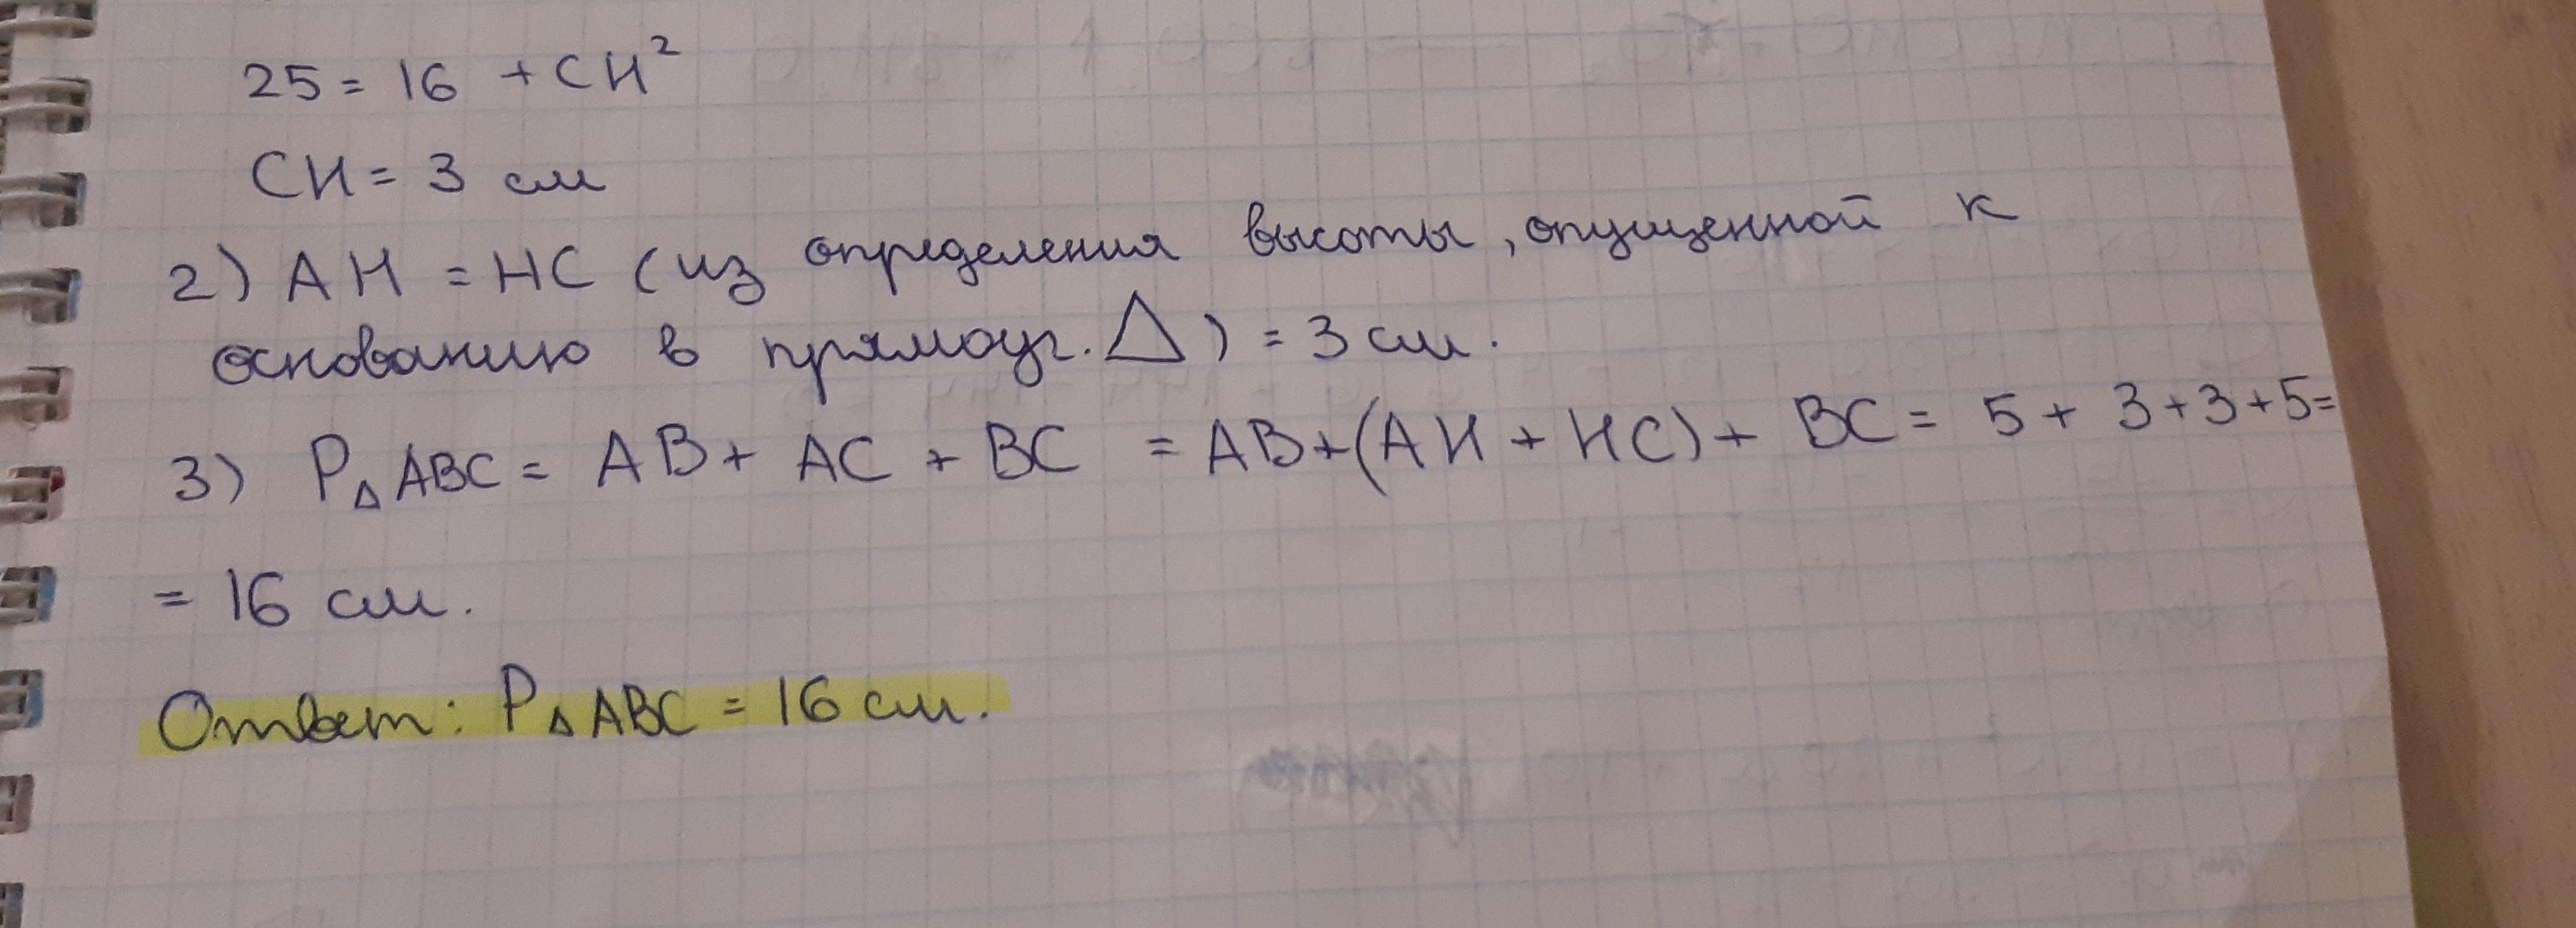 25 = 16 + CH²
CH = 3 см
2) AH = HC (из определения высоты, опущенной к
основанию в прямоуг. △) = 3 см.
3) P△ABC = AB + AC + BC = AB + (AH + HC) + BC = 5 + 3 + 3 + 5 =
= 16 см.
Ответ: P△ABC = 16 см.